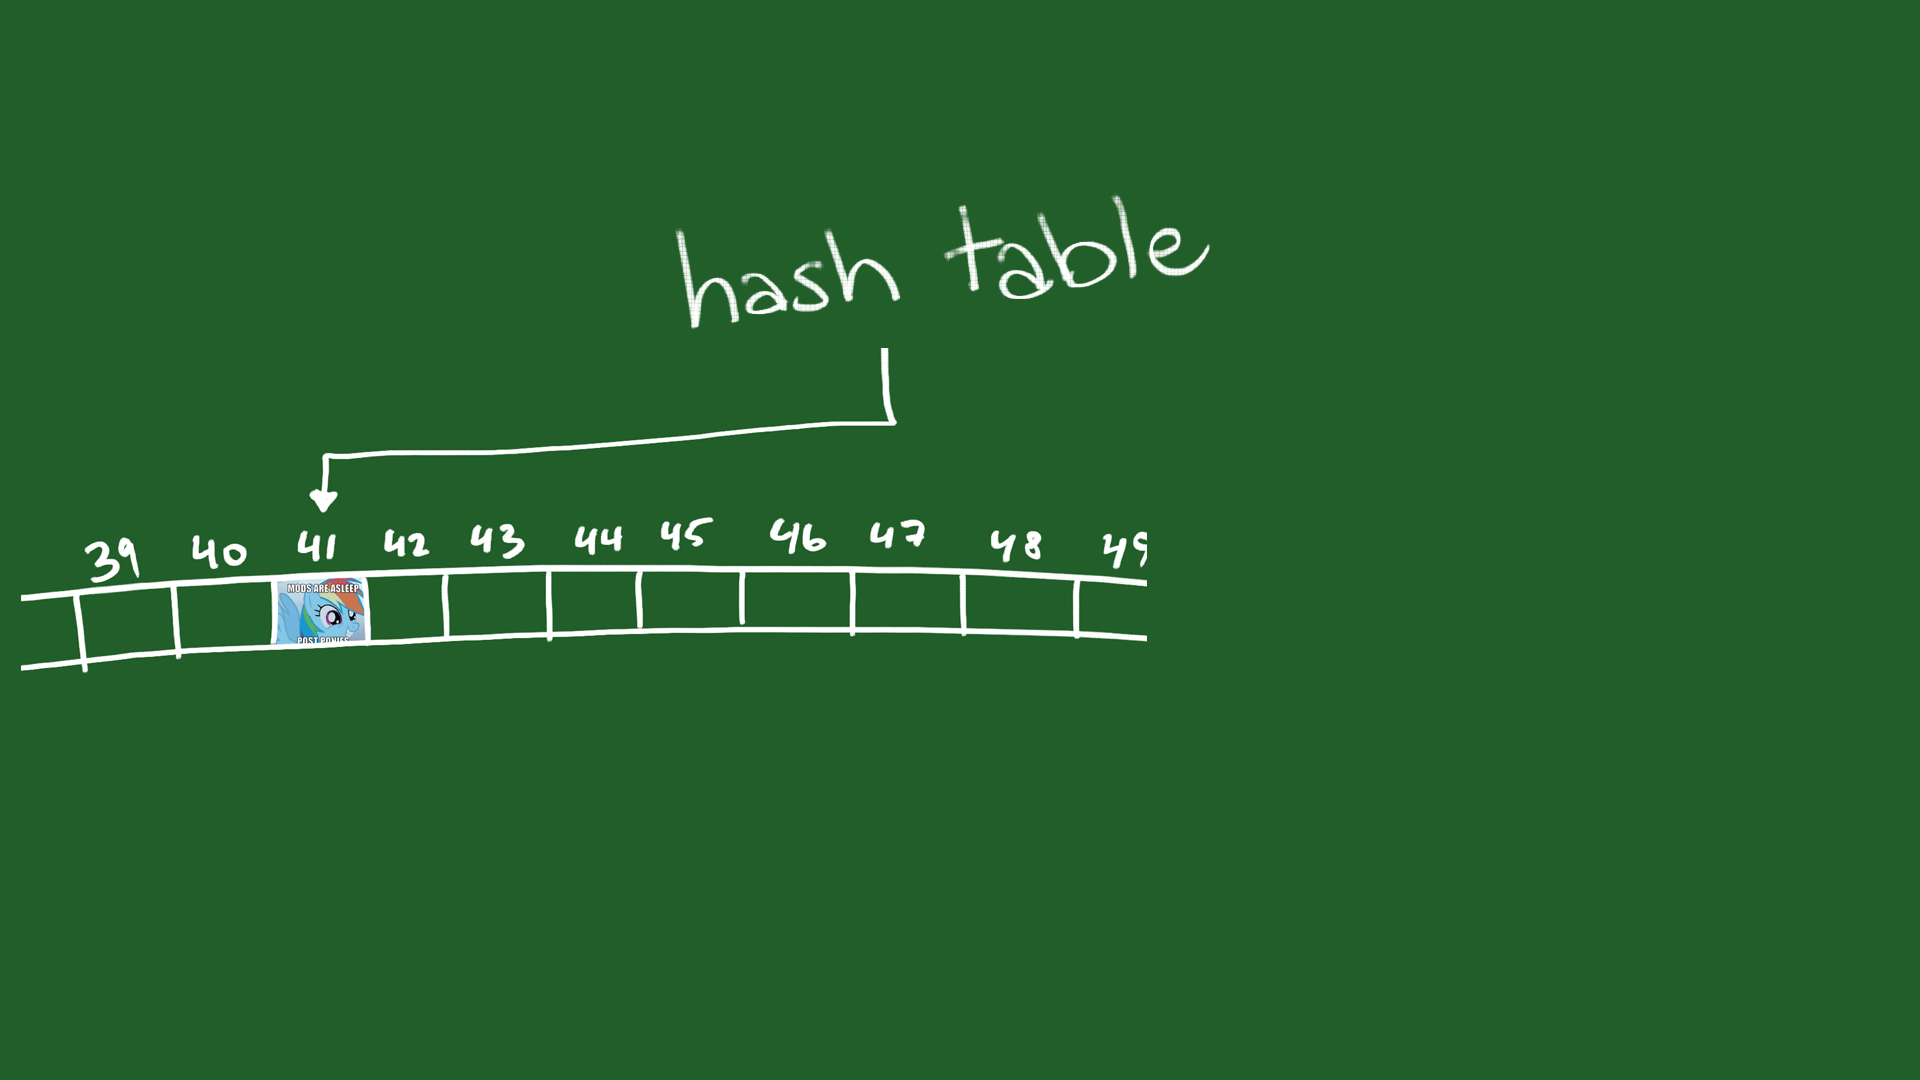 hash table
39 40 41 42 43 44 45 46 47 48 49
MODS ARE ASLEEP
POST PONIES